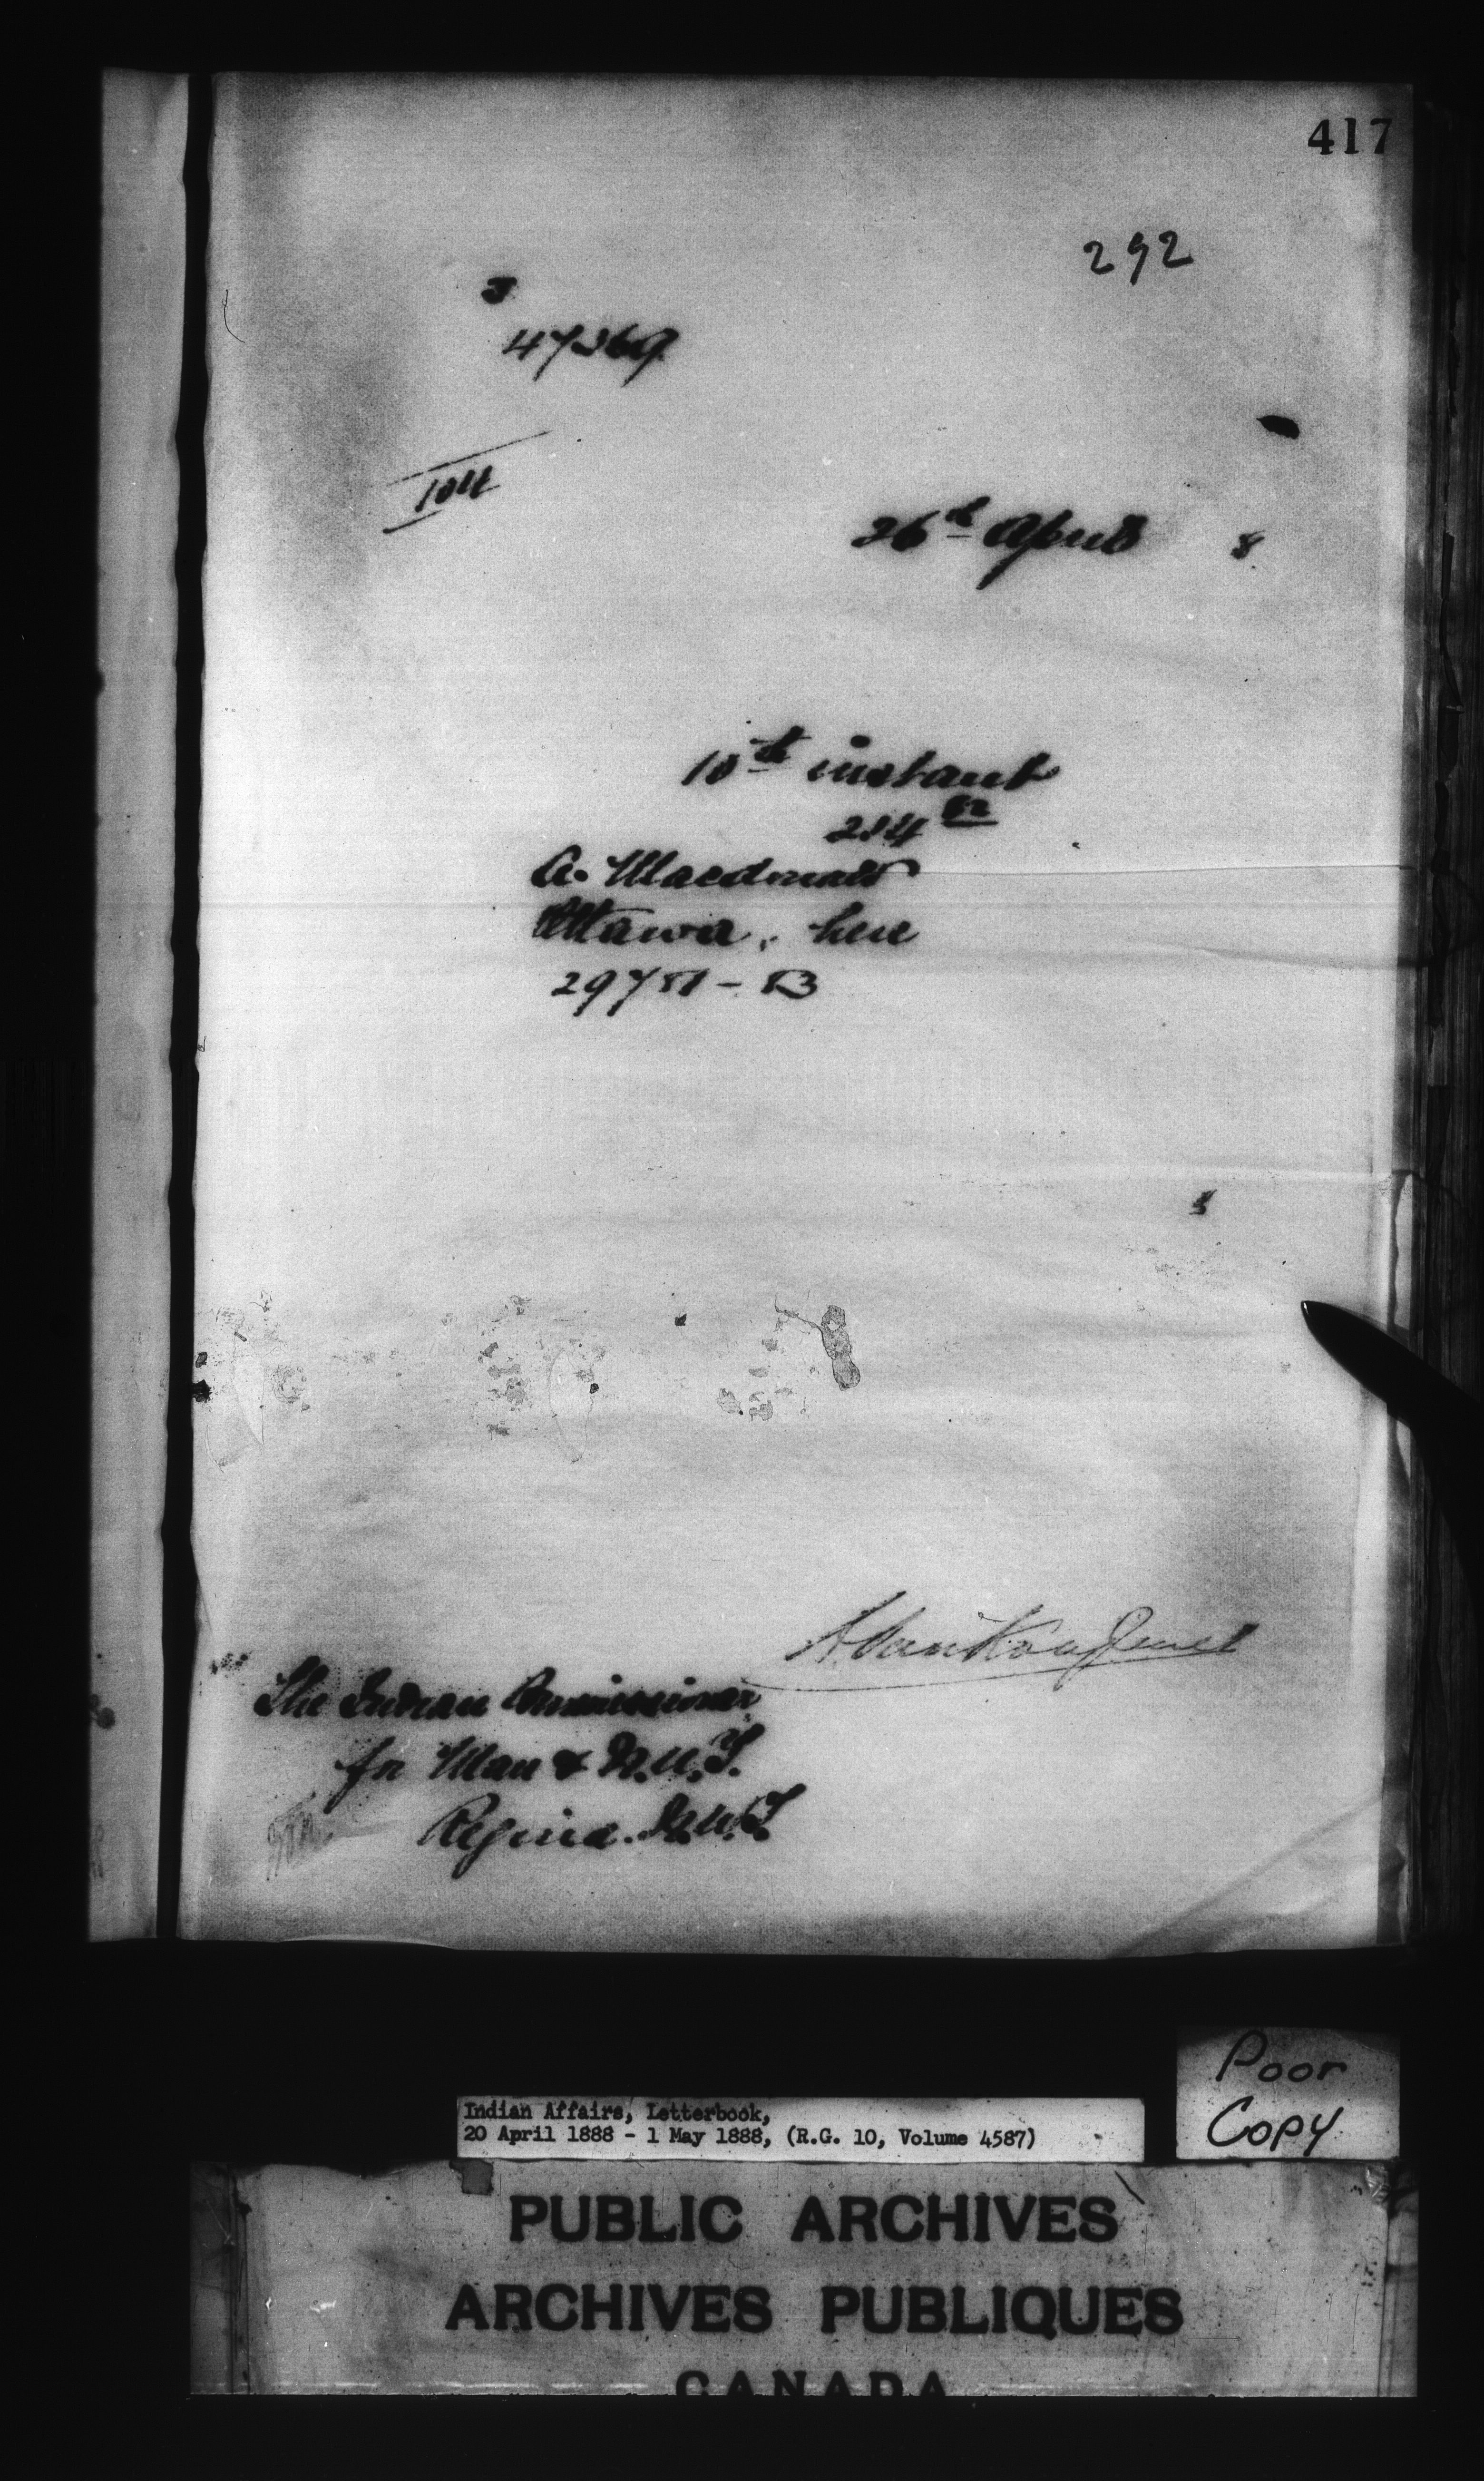 417
292
47369
104
26th April 8
10th instant
214 52
A. Macdonald
Ottawa, here
29751 - B
8
L. VanKoughnet
The Indian Commissioner
for Man & N.W.T.
Regina. N.W.T.
Poor
Copy
Indian Affairs, Letterbook,
20 April 1888 - 1 May 1888, (R.G. 10, Volume 4587)
PUBLIC ARCHIVES
ARCHIVES PUBLIQUES
CANADA